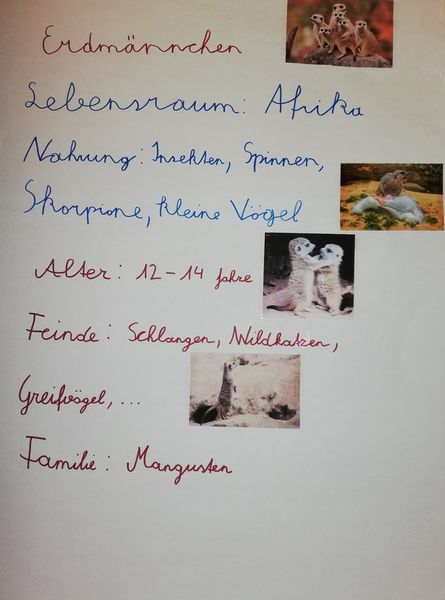 Erdmännchen
Lebensraum: Afrika
Nahrung: Insekten, Spinnen,
Skorpione, kleine Vögel
Alter: 12-14 Jahre
Feinde: Schlangen, Wildkatzen,
Greifvögel, ...
Familie: Mangusten